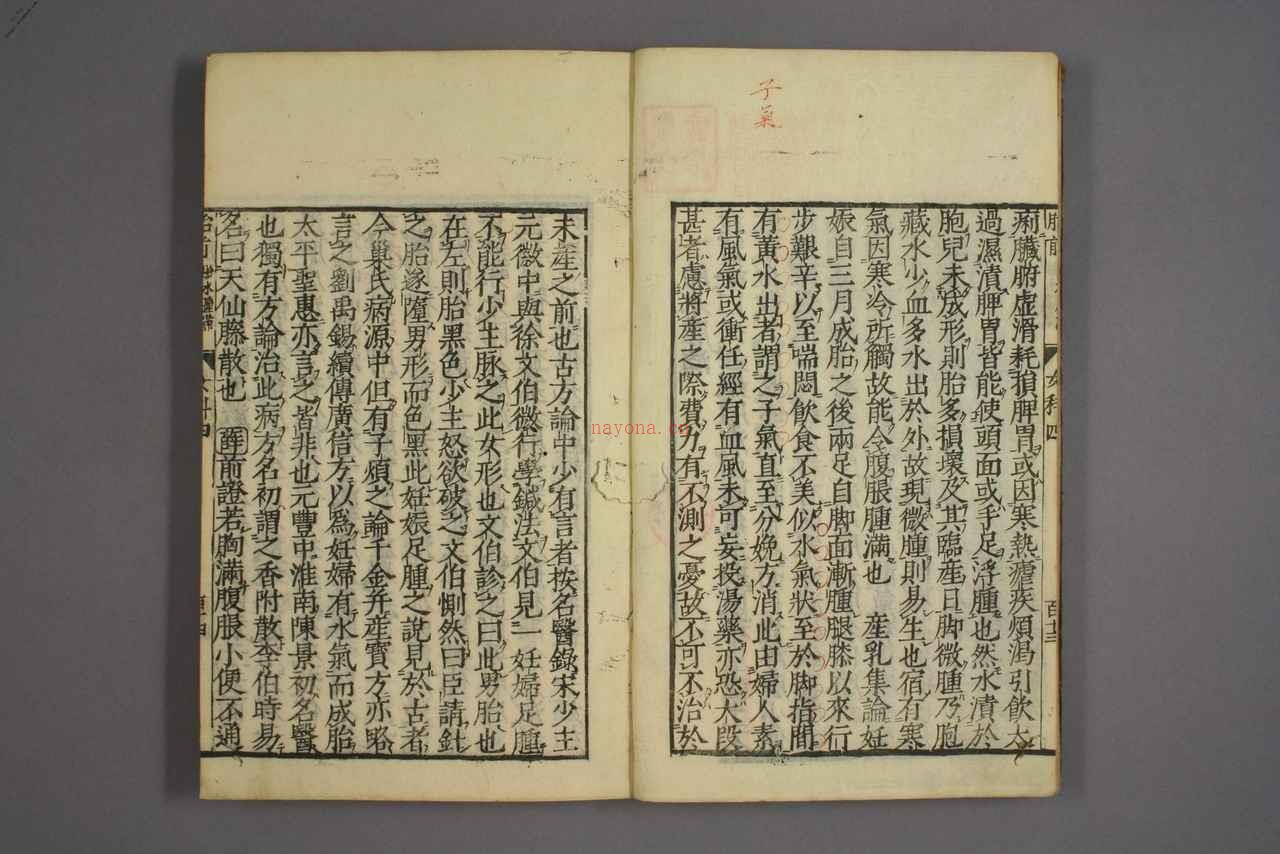 子氣
女科四
痢臟腑虛滑耗損脾胃或因寒熱瘧疾煩渴引飲太
過濕漬脾胃皆能使頭面或手足浮腫也然水漬於
胞兒未成形則胎多損壞及其臨産日脚微腫乃胞
藏水少血多水出於外故現微腫則易生也宿有寒
氣因寒冷所觸故能令腹脹腫滿也 産乳集論妊
娠自三月成胎之後兩足自脚面漸腫腿膝以來行
步艱辛以至喘悶飲食不美似水氣狀至於脚指間
有黄水出者謂之子氣直至分娩方消此由婦人素
有風氣或衝任經有血風未可妄投湯藥亦恐大段
甚者慮將産之際費力有不測之憂故不可不治於
未産之前也古方論中少有言者按名醫錄宋少主
元徽中與徐文伯微行學鍼法文伯見一妊婦足腫
不能行少主脉之此女形也文伯診之曰此男胎也
在左則胎黑色少主怒欲破之文伯惻然曰臣請針
之胎遂墮男形而色黑此妊娠足腫之說見於古者
今巢氏病源中但有子煩之論千金并産寶方亦略
言之劉禹錫續傳廣信方以爲妊婦有水氣而成胎
太平聖惠亦言之皆非也元豐中淮南陳景初名醫
也獨有方論治此病方名初謂之香附散李伯時易
名曰天仙藤散也 薛前證若胸滿腹脹小便不通
nayona.cn